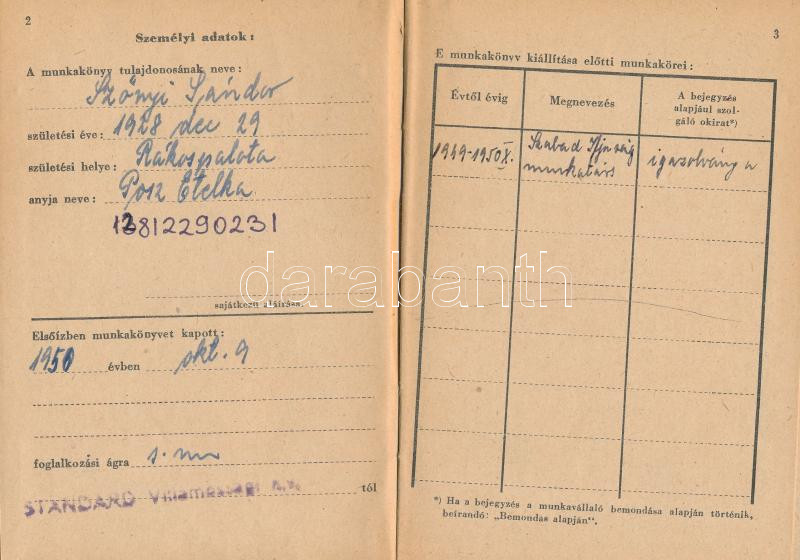 2
Személyi adatok:
A munkakönyv tulajdonosának neve:
Szőnyi Sándor
születési éve: 1928 dec 29
születési helye: Rákospalota
anyja neve: Posz Etelka
12812290231
sajátkezű aláírása.
Elsőízben munkakönyvet kapott:
1950 évben okt. 9
foglalkozási ágra s.m
STANDARD Villamossági r.t. től
3
E munkakönyv kiállítása előtti munkakörei:
Évtől évig
Megnevezés
A bejegyzés
alapjául szol-
gáló okirat*)
1949-1950 X.
Szabad Ifjúság
munkatárs
igazolvány a
*) Ha a bejegyzés a munkavállaló bemondása alapján történik,
beírandó: „Bemondás alapján".
darabanth